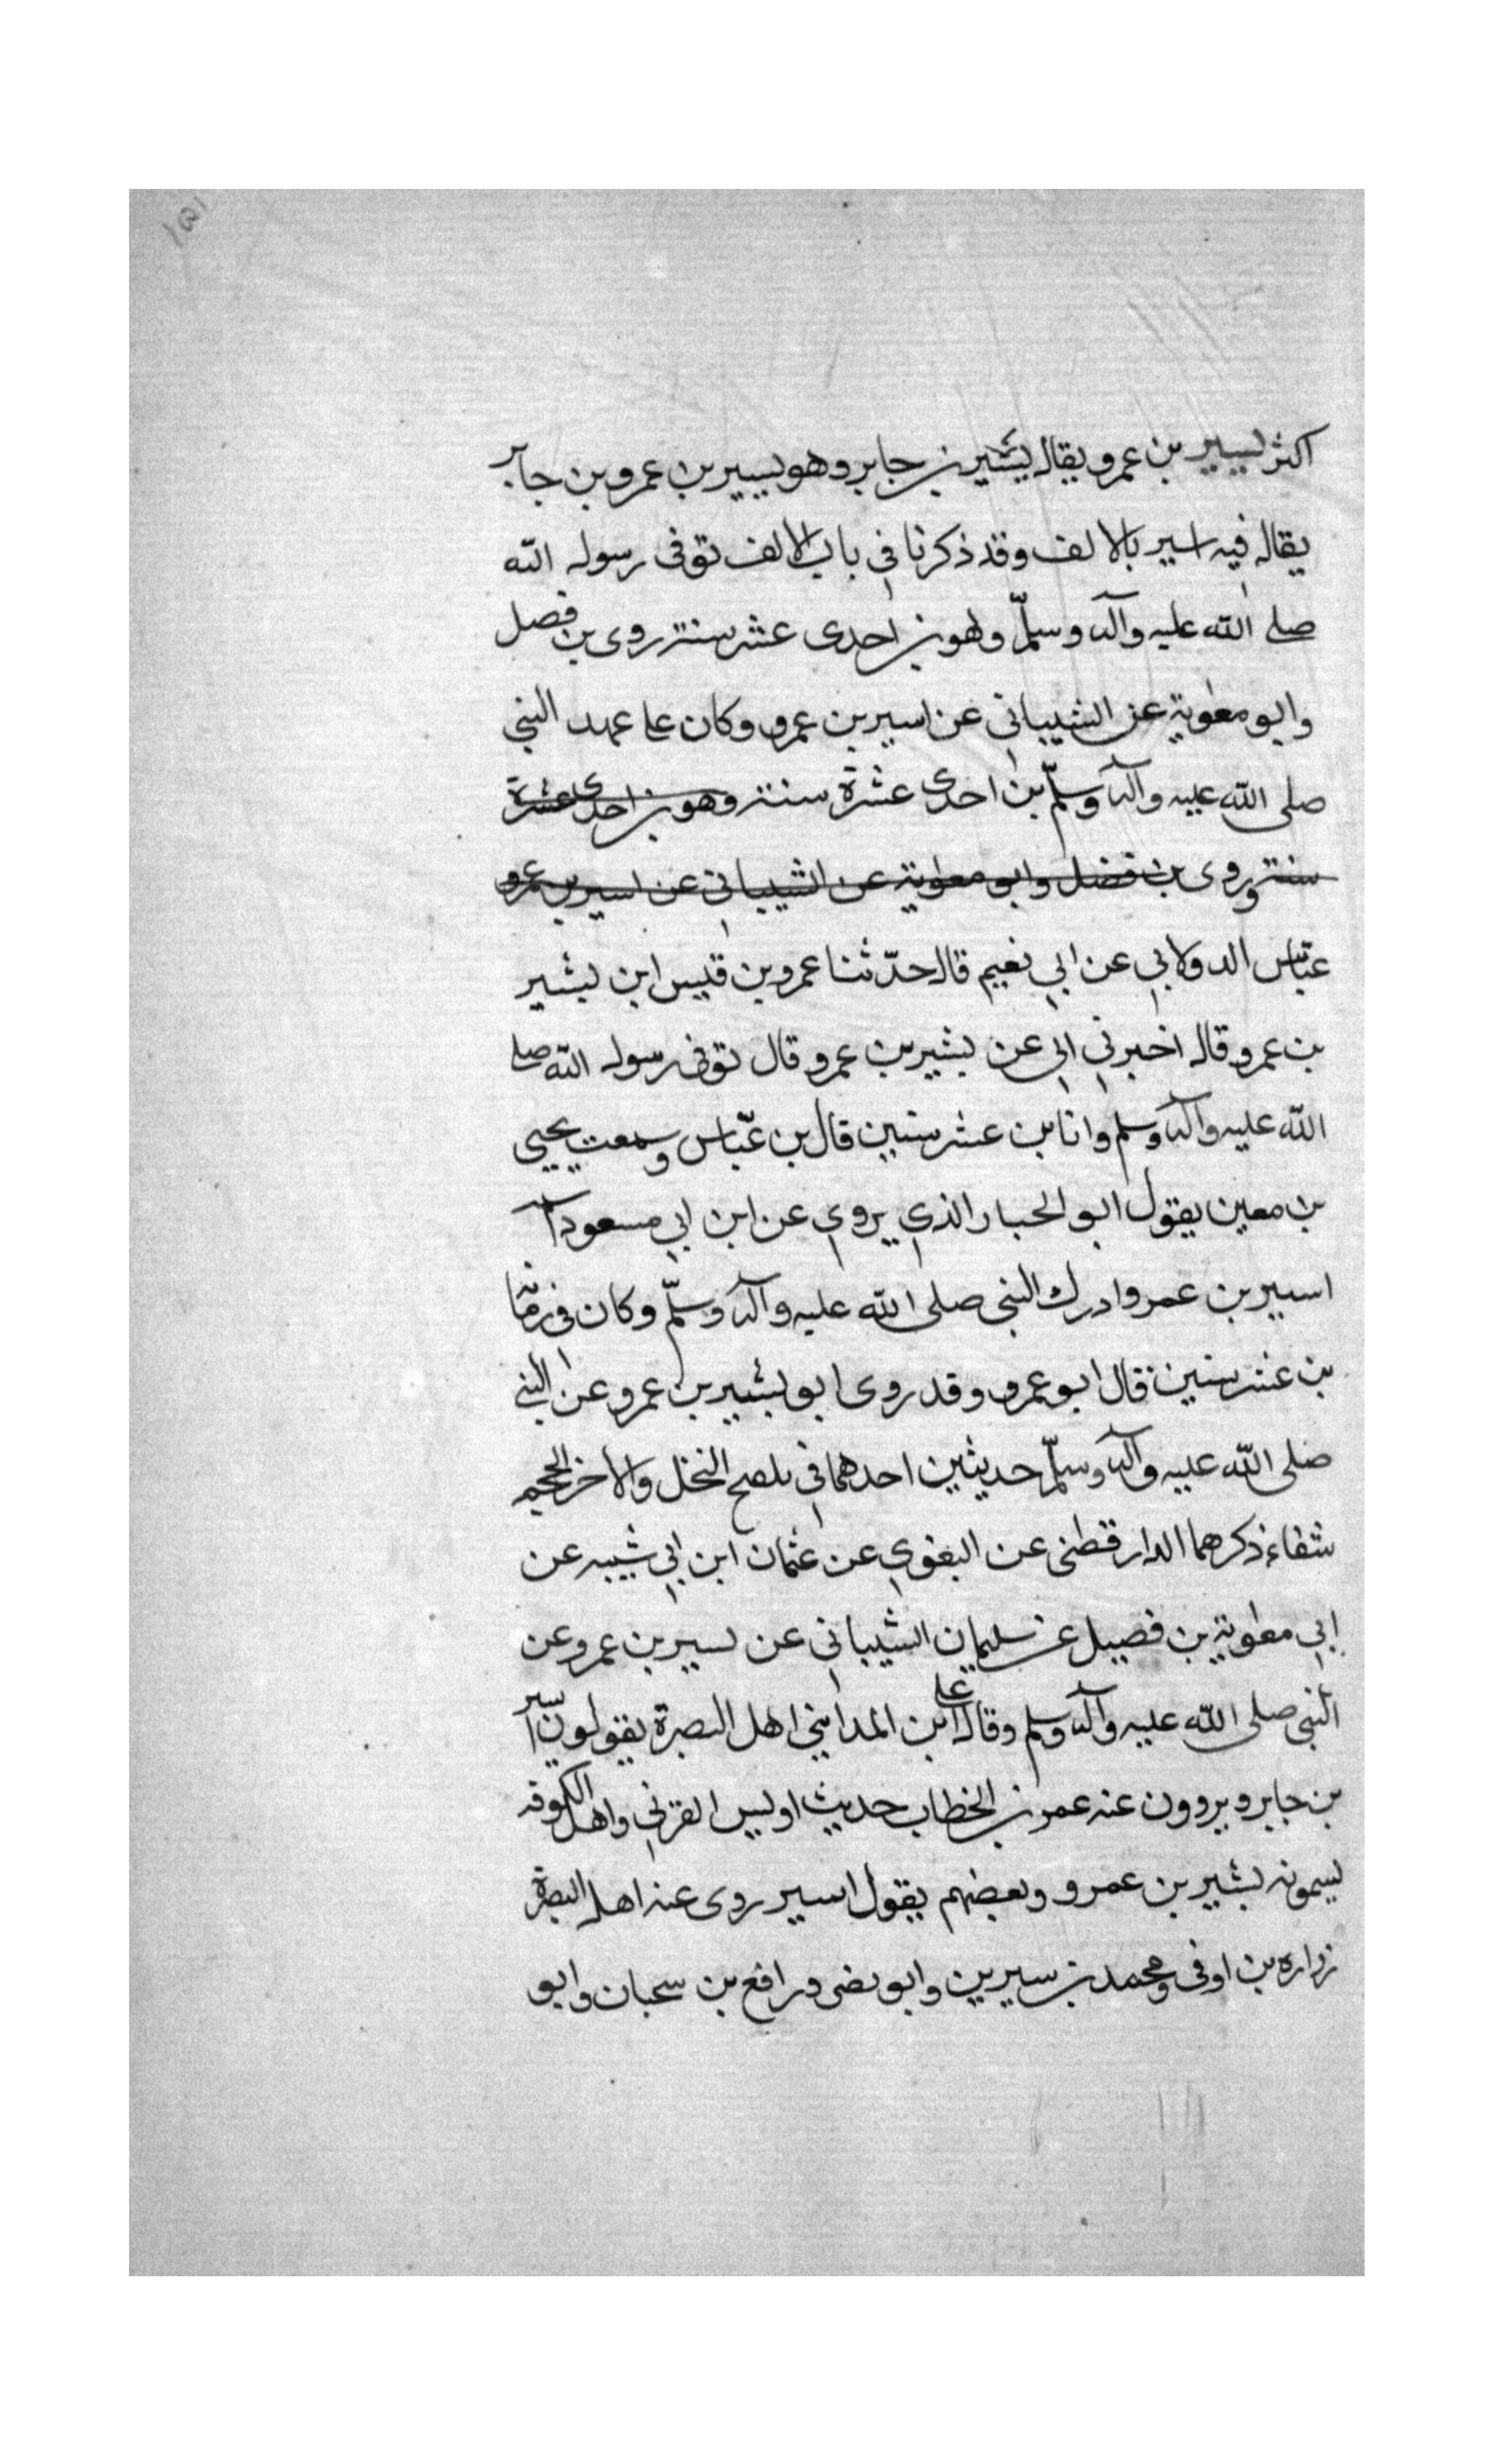 اكثر يسير بن عمرو يقال يشير بن جابر وهو يسير بن عمرو بن جابر
يقال فيه اسير بالالف وقد ذكرنا في باب الالف توفى رسول الله
صلى الله عليه وآله وسلّم وهو بن احدى عشر سنة روى بن فضل
وابو معوية عن الشيباني عن اسير بن عمرو وكان على عهد النبي
صلى الله عليه وآله وسلّم بن احدى عشرة سنة وهو بن احدى عشرة
سنة وروى بن فضل وابو معوية عن الشيباني عن اسير بن عمرو
عبّاس الدولابي عن ابي نعيم قال حدّثنا عمرو بن قيس ابن بشير
بن عمرو قال اخبرني ابي عن بشير بن عمرو قال توفى رسول الله صلى
الله عليه وآله وسلم وانا بن عشر سنين قال بن عبّاس وسمعت يحيى
بن معين يقول ابو الخيار الذي يروي عن ابن ابي مسعود
اسير بن عمرو ادرك النبي صلى الله عليه وآله وسلّم وكان في زمانه
بن عشر سنين قال ابو عمرو وقد روى ابو بشير بن عمرو عن النبي
صلى الله عليه وآله وسلّم حديثين احدهما في تلصح النخل والاخر الحجم
شفاء ذكرهما الدارقطنى عن البغوي عن عثمان ابن ابي شيبه عن
ابي معوية بن فضيل عن سليمان الشيباني عن يسير بن عمرو عن
النبي صلى الله عليه وآله وسلم وقال على ابن المدايني اهل البصرة يقولون اسير
بن جابر ويروون عنه عمر بن الخطاب حديث اويس القرني واهل الكوفه
يسمونه بشير بن عمرو وبعضهم يقول اسير روى عنه اهل البصرة
زراره بن اوفى ومحمد بن سيرين وابو نضر ورافع بن سحبان وابو
١٥١